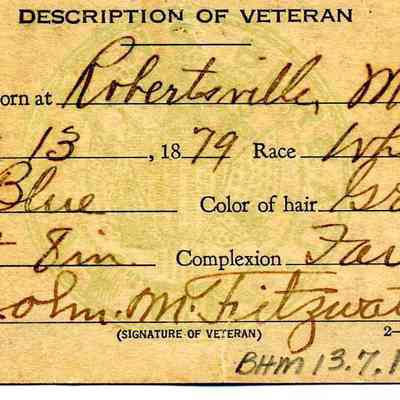 DESCRIPTION OF VETERAN
orn at Robertsville, M
13, 1879 Race Wh
Blue Color of hair Gr
8 in. Complexion Fai
ohn. M. Fitzwat
(SIGNATURE OF VETERAN) 2-
BHM 13.7.1